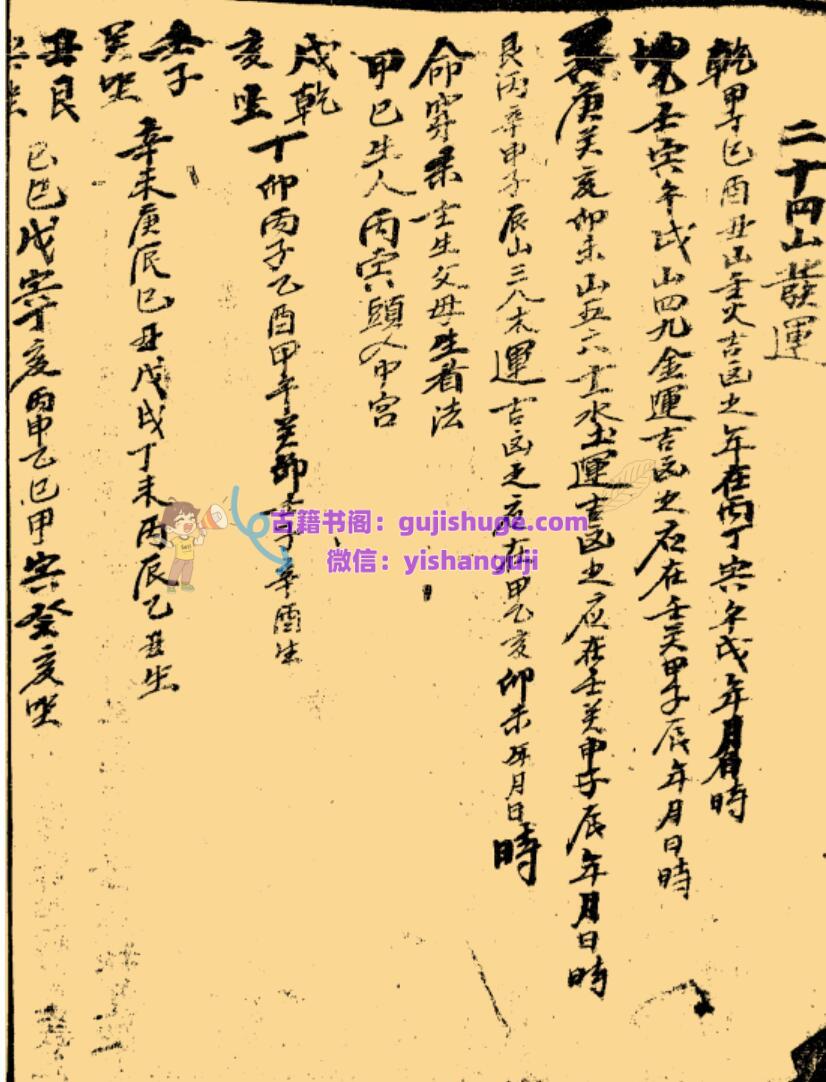 二十四山發運
乾甲丁巳酉丑山 火吉凶之年在丙丁寅午戌年月日時
壬寅午戌山四九金運吉凶之应在壬癸甲子辰年月日時
庚癸亥卯未山五六 水土運吉凶之应在壬癸申子辰年月日時
艮丙辛申子辰山三八木運吉凶之应在甲乙亥卯未年月日時
命 生父母生看法
甲巳生人丙寅頭入中宫
戌乾
亥坐
丁卯丙子乙酉甲午癸卯 子辛酉生
壬子
癸坐
辛未庚辰巳丑戊戌丁未丙辰乙丑生
丑艮
坐
巳巳戊寅丁亥丙申乙巳甲寅癸亥坐
古籍书阁：gujishuge.com
微信：yishanguji